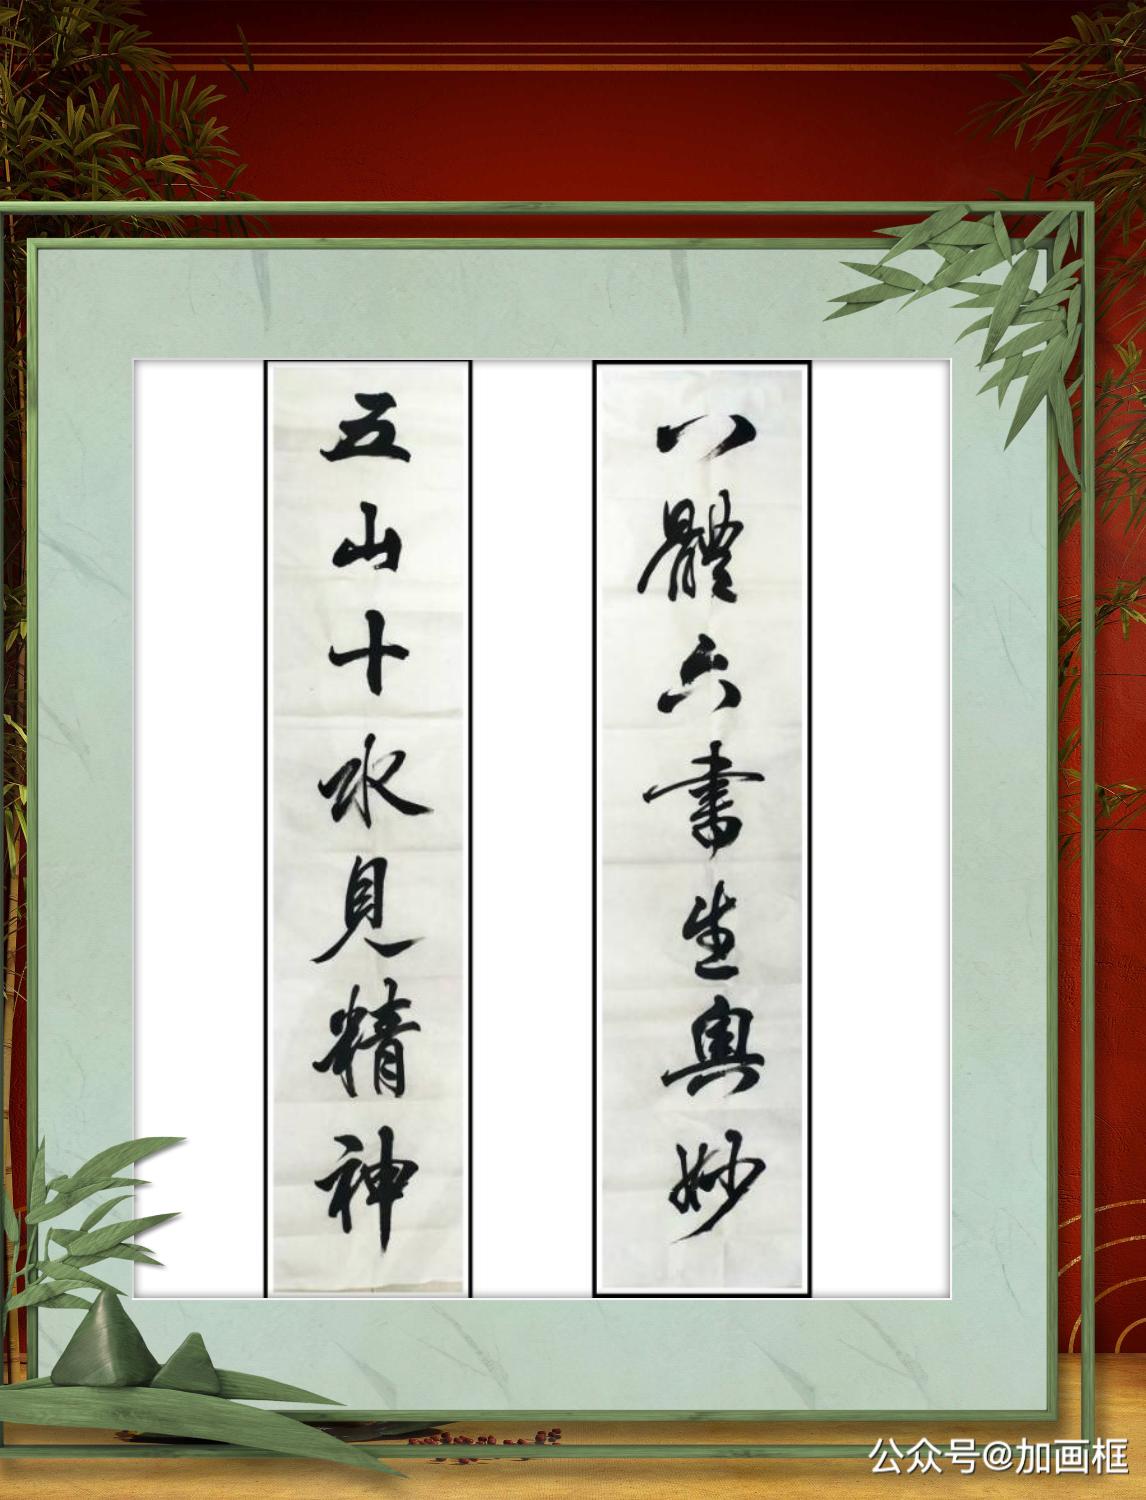 八體六書生奧妙
五山十水見精神
公众号@加画框